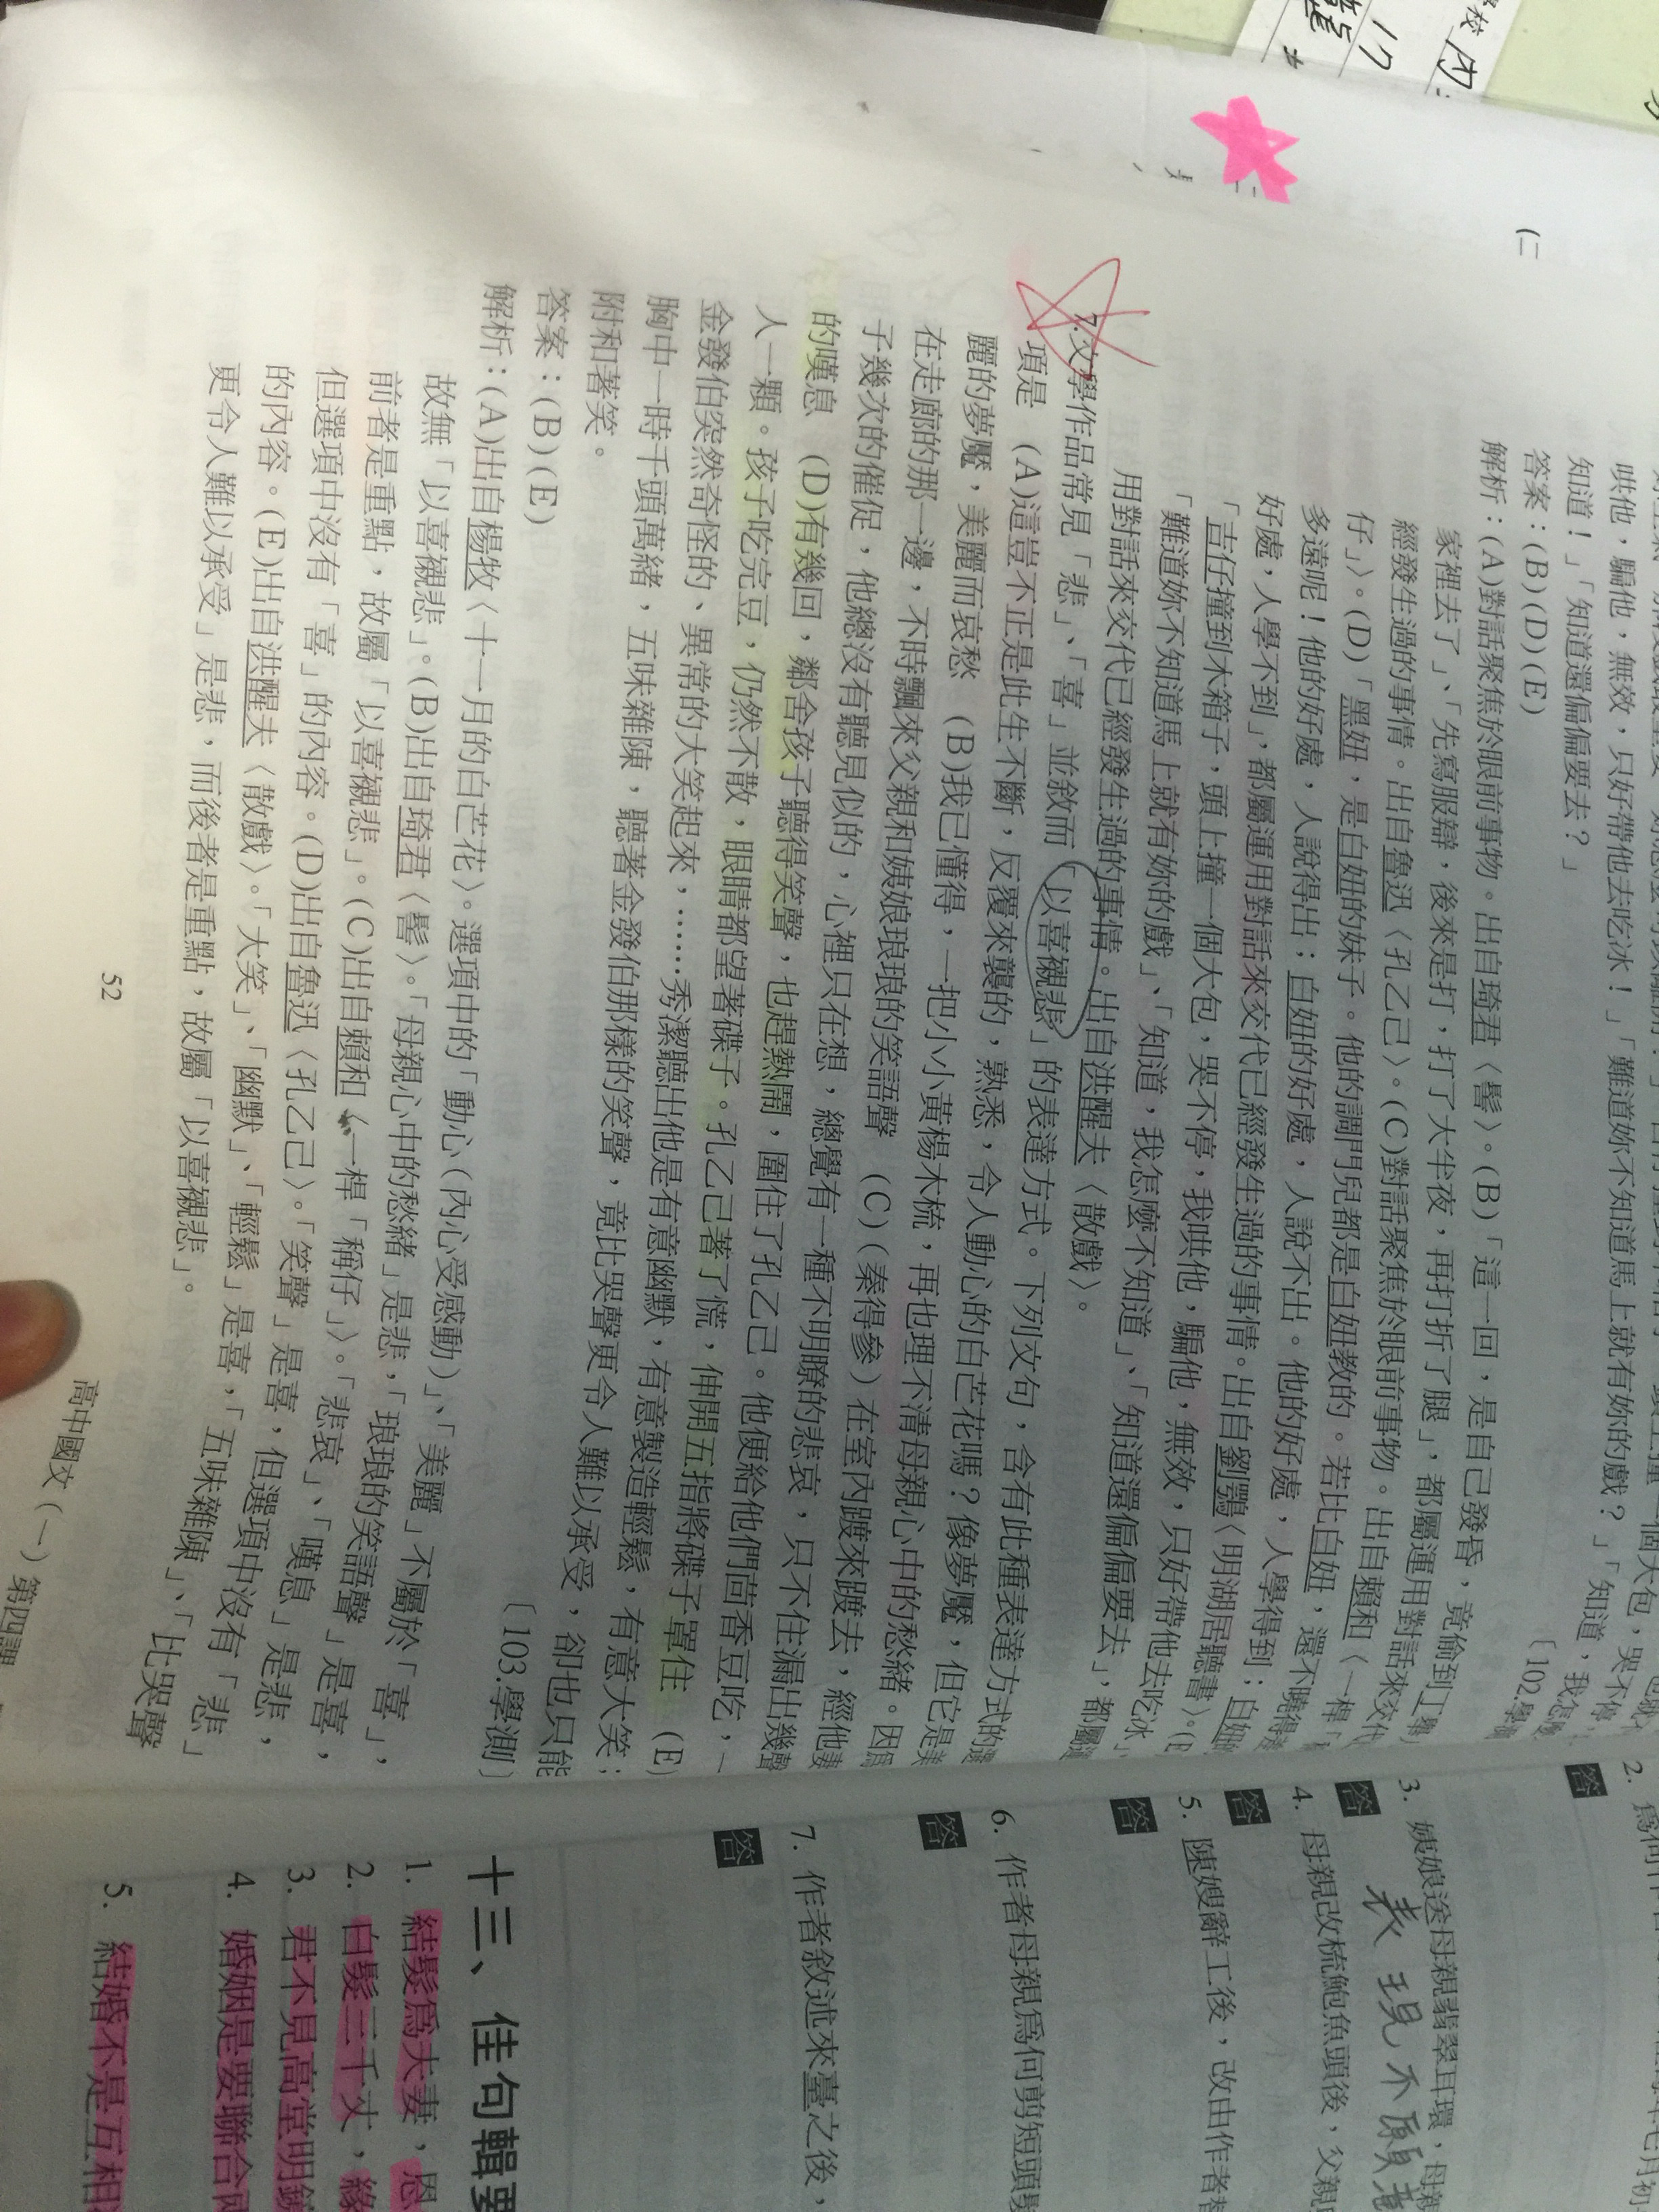 哄他，騙他，無效，只好帶他去吃冰！」「難道妳不知道馬上就有妳的戲？」「知道，我怎麼
知道！」「知道還偏偏要去？」
答案：(B)(D)(E)
〔102.學測
解析：(A)對話聚焦於眼前事物。出自琦君〈髻〉。(B)「這一回，是自己發昏，竟偷到丁舉人
家裡去了」、「先寫服辯，後來是打，打了大半夜，再打折了腿」，都屬運用對話來交代
經發生過的事情。出自魯迅〈孔乙己〉。(C)對話聚焦於眼前事物。出自賴和〈一桿「
仔」〉。(D)「黑妞，是白妞的妹子。他的調門兒都是白妞教的。若比白妞，還不曉得差
多遠呢！他的好處，人說得出；白妞的好處，人說不出。他的好處，人學得到；白妞
好處，人學不到」，都屬運用對話來交代已經發生過的事情。出自劉鶚〈明湖居聽書〉。(E
「吉仔撞到木箱子，頭上撞一個大包，哭不停，我哄他，騙他，無效，只好帶他去吃冰」、
「難道妳不知道馬上就有妳的戲」、「知道，我怎麼不知道」、「知道還偏偏要去」，都屬
用對話來交代已經發生過的事情。出自洪醒夫〈散戲〉。
7.文學作品常見「悲」、「喜」並敘而「以喜襯悲」的表達方式。下列文句，含有此種表達方式的選
項是　(A)這豈不正是此生不斷，反覆來襲的，熟悉，令人動心的白芒花嗎？像夢魘，但它是美
麗的夢魘，美麗而哀愁　(B)我已懂得，一把小小黃楊木梳，再也理不清母親心中的愁緒。因為
在走廊的那一邊，不時飄來父親和姨娘琅琅的笑語聲　(C)(秦得參)在室內踱來踱去，經他妻
子幾次的催促，他總沒有聽見似的，心裡只在想，總覺有一種不明瞭的悲哀，只不住漏出幾聲
的嘆息　(D)有幾回，鄰舍孩子聽得笑聲，也趕熱鬧，圍住了孔乙己。他便給他們茴香豆吃，一
人一顆。孩子吃完豆，仍然不散，眼睛都望著碟子。孔乙己著了慌，伸開五指將碟子罩住　(E)
金發伯突然奇怪的、異常的大笑起來，……秀潔聽出他是有意幽默，有意製造輕鬆，有意大笑；
胸中一時千頭萬緒，五味雜陳，聽著金發伯那樣的笑聲，竟比哭聲更令人難以承受，卻也只能
附和著笑。
〔103.學測〕
答案：(B)(E)
解析：(A)出自楊牧〈十一月的白芒花〉。選項中的「動心(內心受感動)」、「美麗」不屬於「喜」，
故無「以喜襯悲」。(B)出自琦君〈髻〉。「母親心中的愁緒」是悲，「琅琅的笑語聲」是喜，
前者是重點，故屬「以喜襯悲」。(C)出自賴和〈一桿「稱仔」〉。「悲哀」、「嘆息」是悲，
但選項中沒有「喜」的內容。(D)出自魯迅〈孔乙己〉。「笑聲」是喜，但選項中沒有「悲」
的內容。(E)出自洪醒夫〈散戲〉。「大笑」、「幽默」、「輕鬆」是喜，「五味雜陳」、「比哭聲
更令人難以承受」是悲，而後者是重點，故屬「以喜襯悲」。
52
高中國文(一)第四課
2. 爲何
答
3. 姨娘送母親翡翠耳環，母親
表現不願意
答
4. 母親改梳鮑魚頭後，父親
答
5. 陳嫂辭工後，改由作者替
答
6. 作者母親爲何剪短頭髮
答
7. 作者敘述來臺之後，
答
十三、佳句輯要
1. 結髮爲夫妻，恩
2. 白髮三千丈，緣
3. 君不見高堂明鏡
4. 婚姻是要聯合兩
5. 結婚不是互相